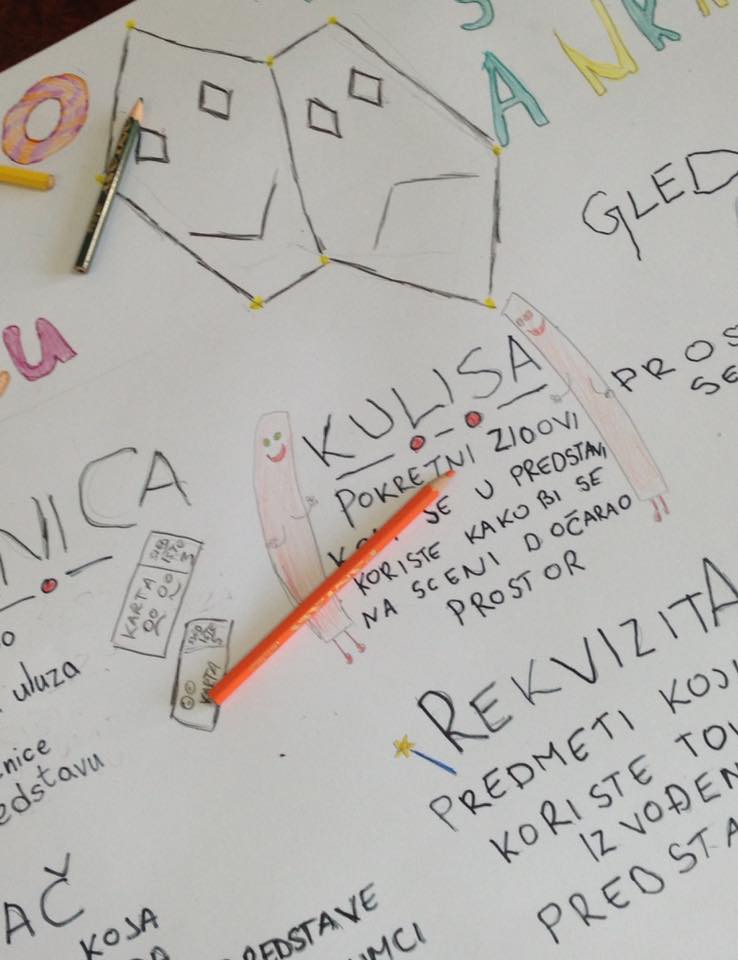 S
ANK
U
GLED
PROS
SE
KULISA
POKRETNI ZIDOVI
SE U PREDSTAVI
KORISTE KAKO BI SE
NA SCENI DOČARAO
PROSTOR
NICA
KARTA
KARTA
uluza
nice
edstavu
REKVIZITA
PREDMETI KOJI
KORISTE TO
IZVOĐEN
PREDSTA
AČ
KOJA
REDSTAVE
UMCI